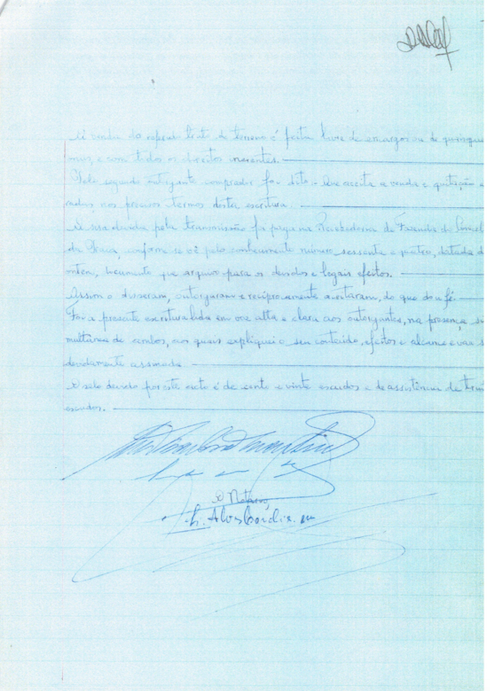 A venda do referido trato de terreno é feita livre de encargos ou de quaisquer
e com todos os direitos inerentes.
Pelo segundo outorgante comprador foi dito - Que aceita a venda e quitação
nos precisos termos desta escritura.
A sisa devida pela transmissão foi paga na de Fazenda do
conforme se vê pelo conhecimento número sessenta e quatro, datado de
ontem, que arquivo para os devidos e legais efeitos.
Assim o disseram, outorgaram e reciprocamente aceitaram, do que dou fé.
Foi a presente escritura lida em voz alta e clara aos outorgantes, na presença
de ambos, aos quais expliquei o seu conteúdo, efeitos e alcance e vai
devidamente assinada
O selo devido por este acto é de cento e vinte escudos e de assistência de
escudos.
O Notário,
Alves